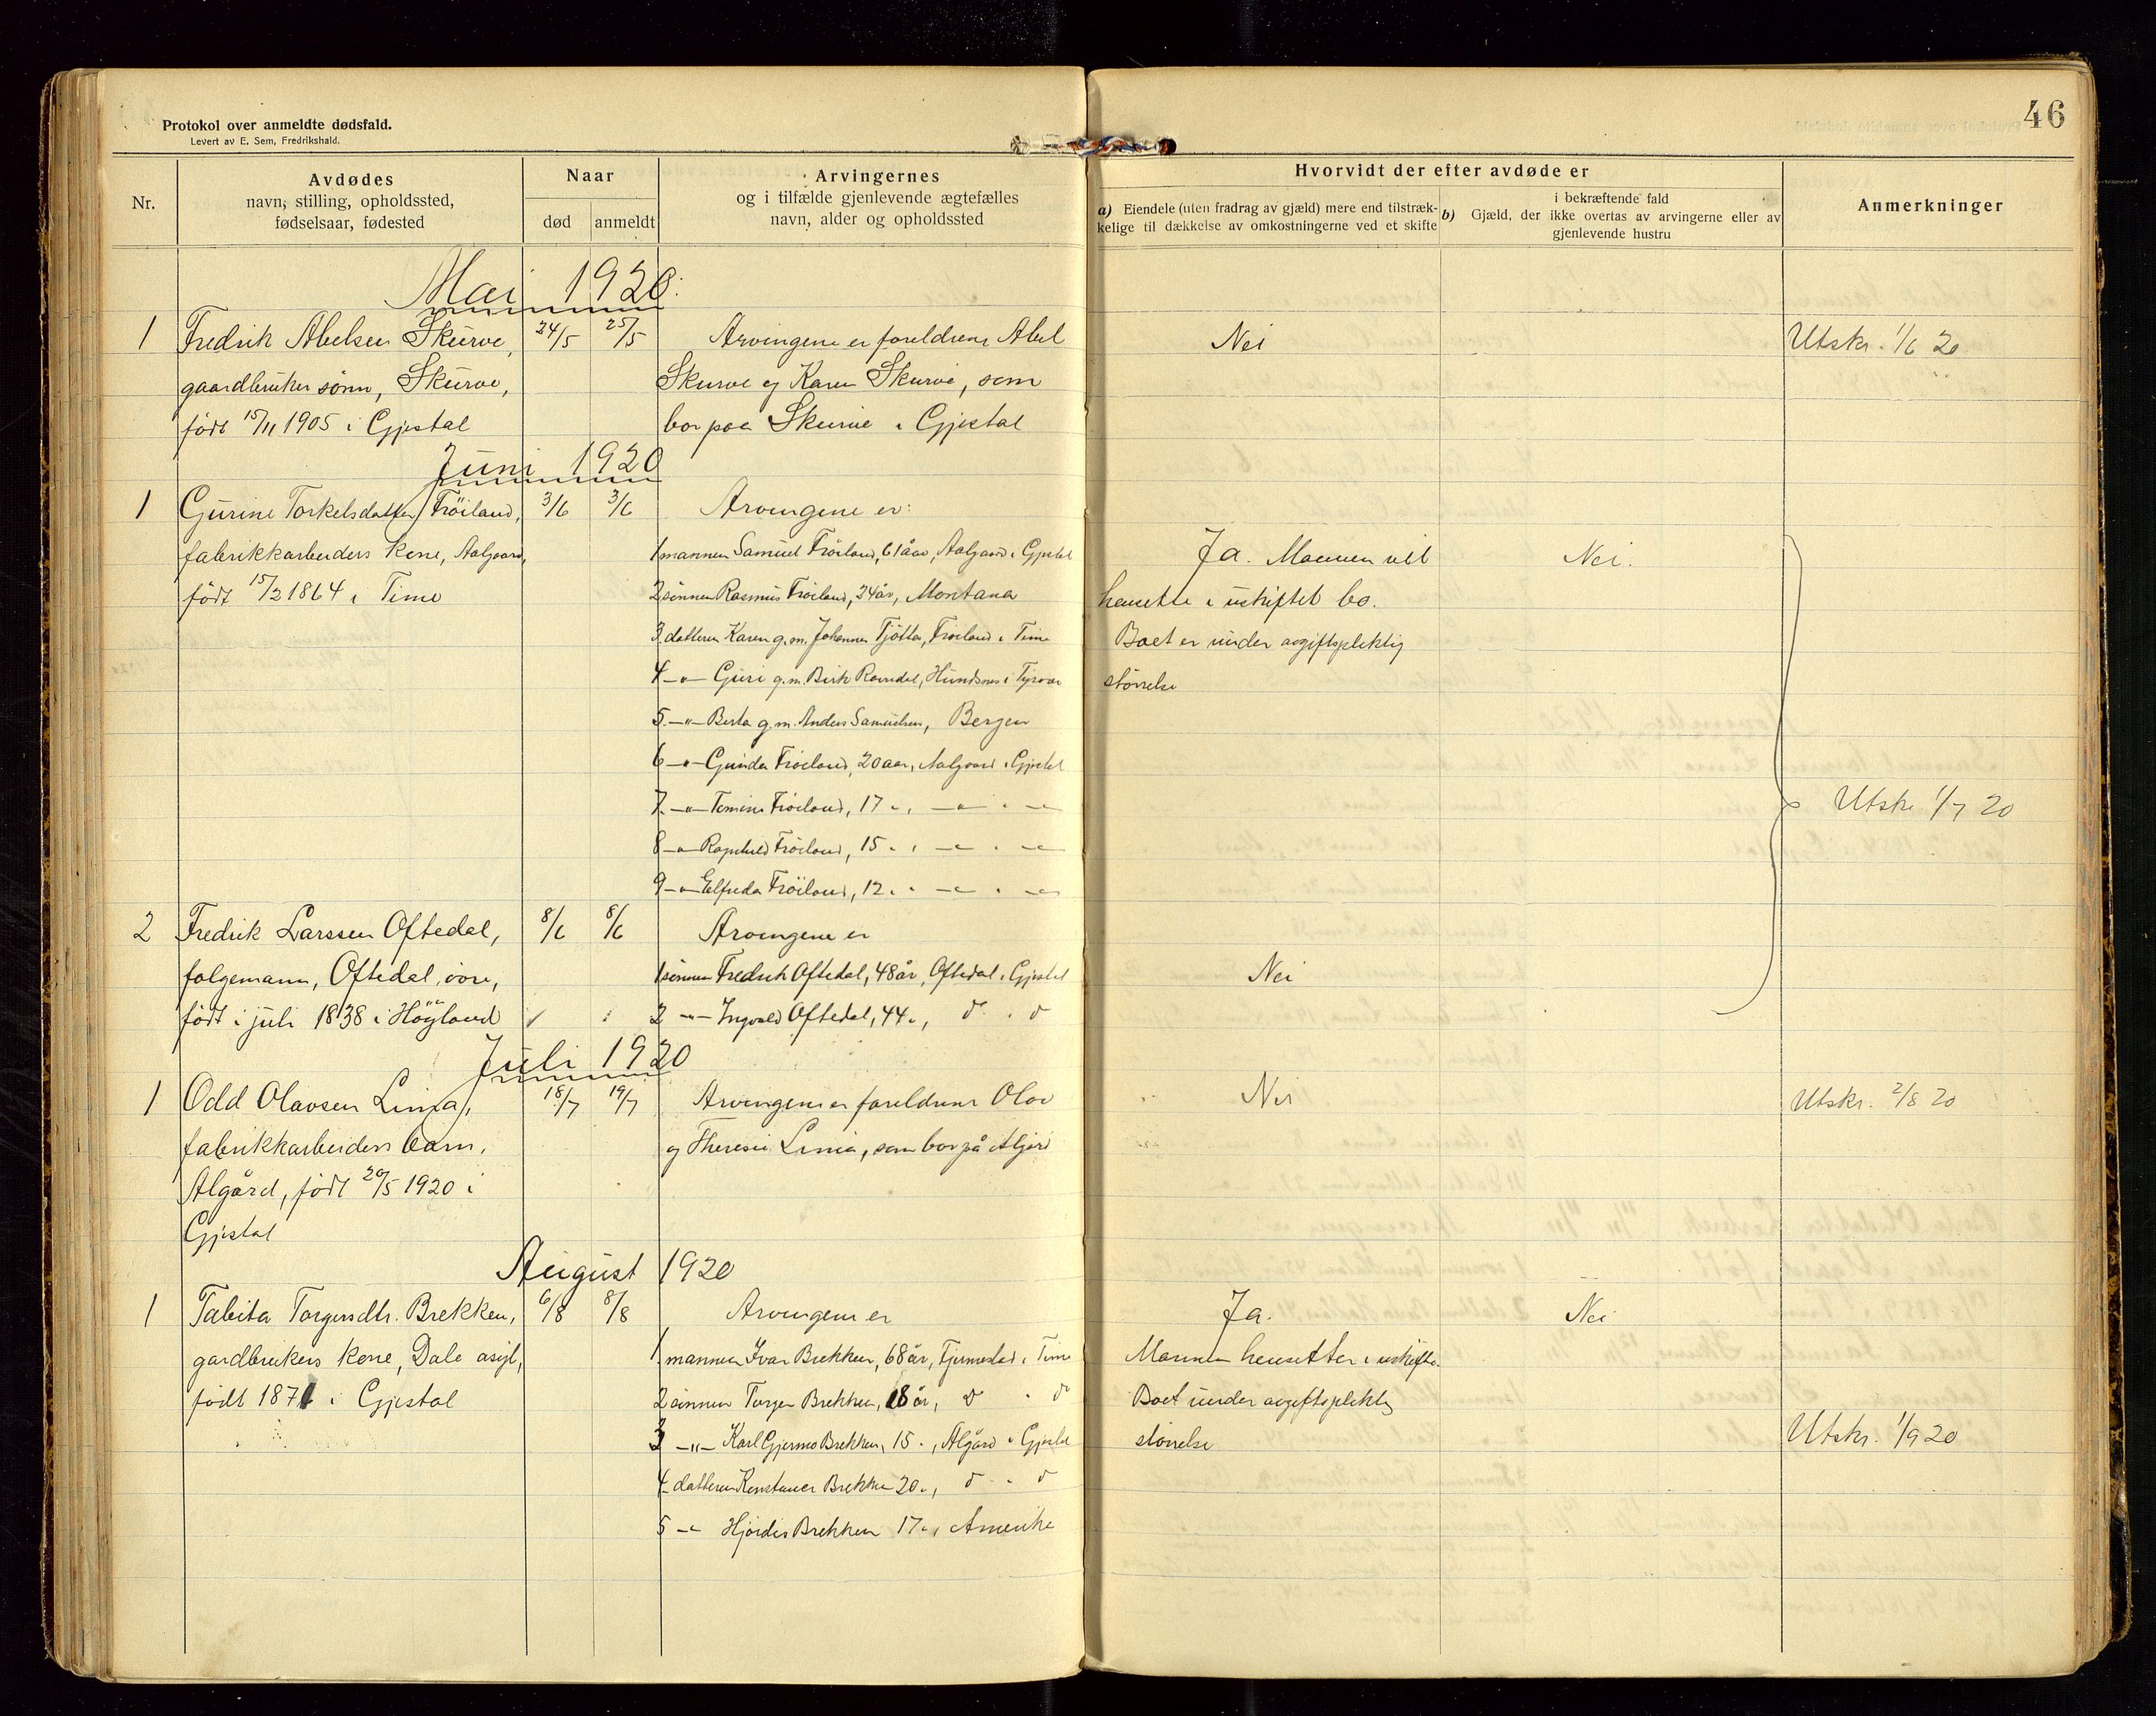 Protokol over anmeldte dødsfald.
Levert av E. Sem, Fredrikshald.
46
Nr.
Avdødes
navn, stilling, opholdssted,
fødselsaar, fødested
Naar
død
anmeldt
Arvingernes
og i tilfælde gjenlevende ægtefælles
navn, alder og opholdssted
Hvorvidt der efter avdøde er
a) Eiendele (uten fradrag av gjæld) mere end tilstræk-
kelige til dækkelse av omkostningerne ved et skifte
i bekræftende fald
b) Gjæld, der ikke overtas av arvingerne eller av
gjenlevende hustru
Anmerkninger
Mai 1920:
1 Fredrik Abelsen Skurve, 24/5 25/5 Arvingene er foreldrene Abel Nei Utskr. 1/6 20
gaardbruker sønn, Skurve, Skurve og Karen Skurve, som
født 15/11 1905 i Gjestal bor paa Skurve i Gjestal
Juni 1920
1 Gurine Torkelsdatter Frøiland, 3/6 3/6 Arvingene er:
fabrikkarbeiders kone, Aalgaard, 1 mannen Samuel Frøiland, 61 år, Aalgaard i Gjestal Ja. Mannen vil Nei.
født 15/2 1864 i Time 2 sønnen Rasmus Frøiland, 24 år, Montana hensette i uskiftet bo.
3 datteren Karen g.m. Johannes Tjøtta, Frøiland i Time Boet er under avgiftspliktig
4 -"- Guri g.m. Birk Ravndal, Hundsnes i Tysvær størrelse
5. -"- Berta g.m. Anders Samuelsen, Bergen
6 -"- Gunda Frøiland, 20 aar, Aalgaard i Gjestal
7. -"- Tomine Frøiland, 17 ", -"- " -"- Utskr 1/7 20
8 -"- Ragnhild Frøiland, 15 ", -"- " -"-
9 -"- Elfreda Frøiland, 12 " " -"- " -"-
2 Fredrik Larssen Oftedal, 8/6 8/6 Arvingene er
folgemann, Oftedal, øvre, 1 sønnen Fredrik Oftedal, 48 år, Oftedal i Gjestal Nei
født i juli 1838 i Høyland 2 -"- Ingvald Oftedal, 44 ", d° " d°
Juli 1920
1 Odd Olavsen Lima, 18/7 19/7 Arvingene er foreldrene Olav Nei Utskr. 2/8 20
fabrikkarbeiders barn, og Therese Lima, som bor på Algård
Algård, født 20/5 1920 i
Gjestal
August 1920
1 Tabita Torgersdtr. Brekken, 6/8 8/8 Arvingene er Ja. Nei
gardbrukers kone, Dale asyl, 1 mannen Ivar Brekken, 68 år, i Time Mannen hensetter i uskifte.
født 1871 i Gjestal 2 sønnen Torger Brekken, 18 år, d° " d° Boet under avgiftspliktig
3 -"- Karl Gjermo Brekken, 15 ", Algård i Gjestal størrelse Utskr. 1/9 20
4 datteren Brekken 20 ", d° " d°
5 -"- Hjørdis Brekken 17 ", Amerika